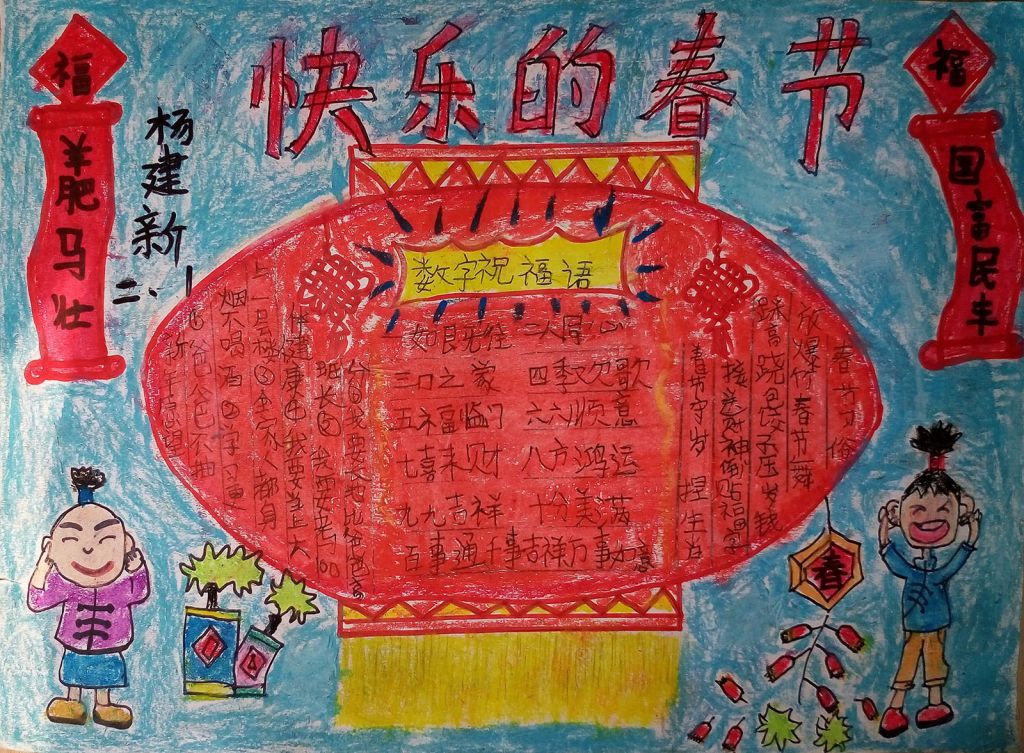 快乐的春节
福
羊肥马壮
福
国富民丰
杨建新
二、1
数字祝福语
一如既往 二人同心
三口之家 四季欢歌
五福临门 六六顺意
七喜来财 八方鸿运
九九吉祥 十分美满
百事通千事吉祥万事如意
春节习俗
放爆竹 春节舞
踩高跷 包饺子压岁钱
接送财神 倒贴福字
春节守岁 捏生肖
新年愿望
①爸爸不抽
烟不喝酒②字写
③全家人都身
体健康④我要当上大
班长⑤我要考100
分⑥我要长地比爸爸高
春